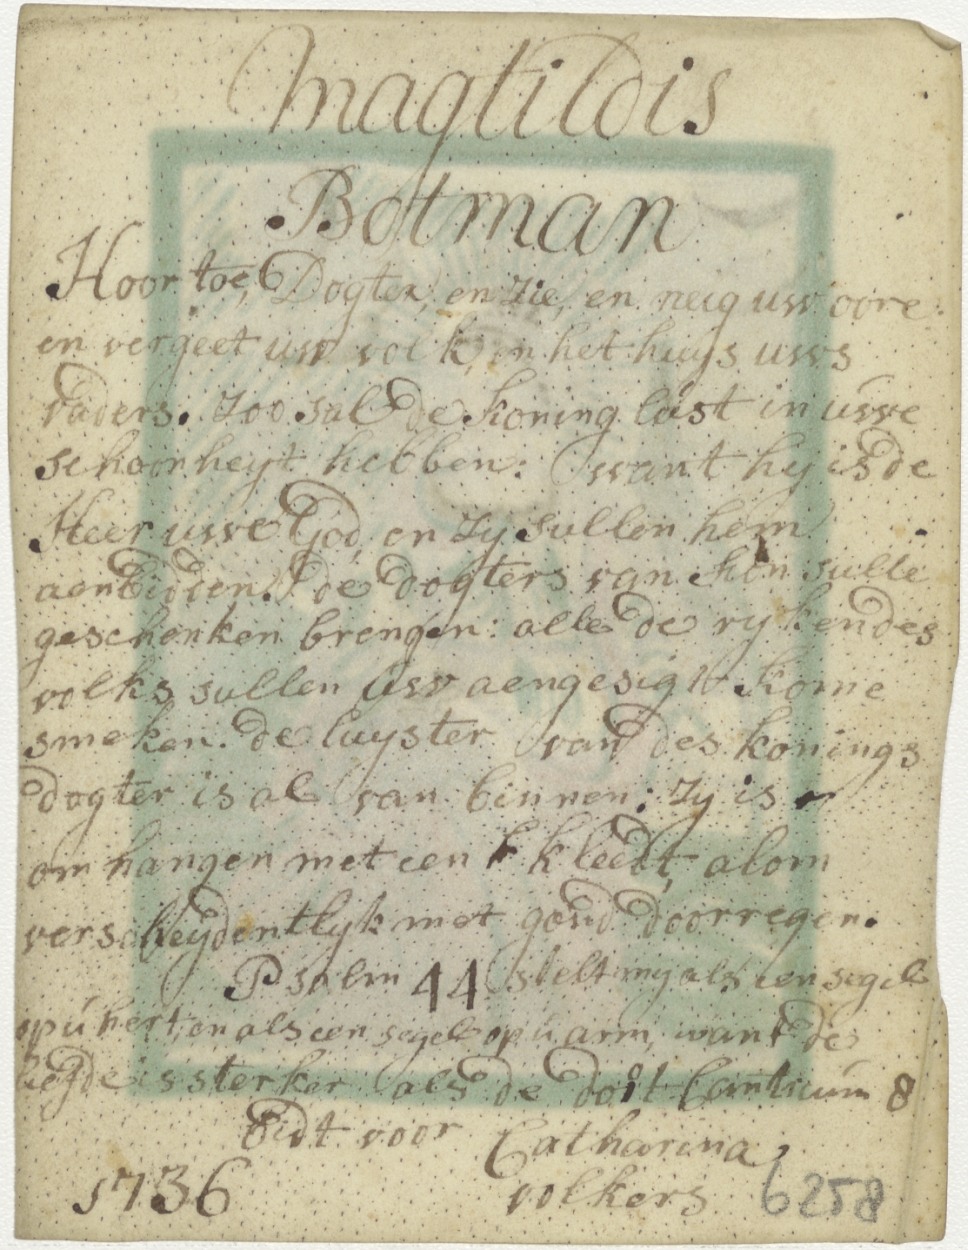 Magtildis
Botman
Hoor toe, Dogter, en zie, en neig uw oore
en vergeet uw volk, en het huys uws
vaders. Zoo sal de koning lust in uwe
schoonheyt hebben: want hy is de
Heer uwe God, en zy sullen hem
aenbidden. de dogters van sullе
geschenken brengen: alle de ryken des
volks sullen uw aengesigt kome
smeken. de luyster van des konings
dogter is al van binnen: zy is
om hangen met een kleedt, alom
verscheydentlyk met goud doorregen.
Psalm 44 stelt my als een segel
op u hert, en als een segel op u arm, want de
liefde is sterker als de doot Canticum 8
Bidt voor Catharina
1736 volkers 6258